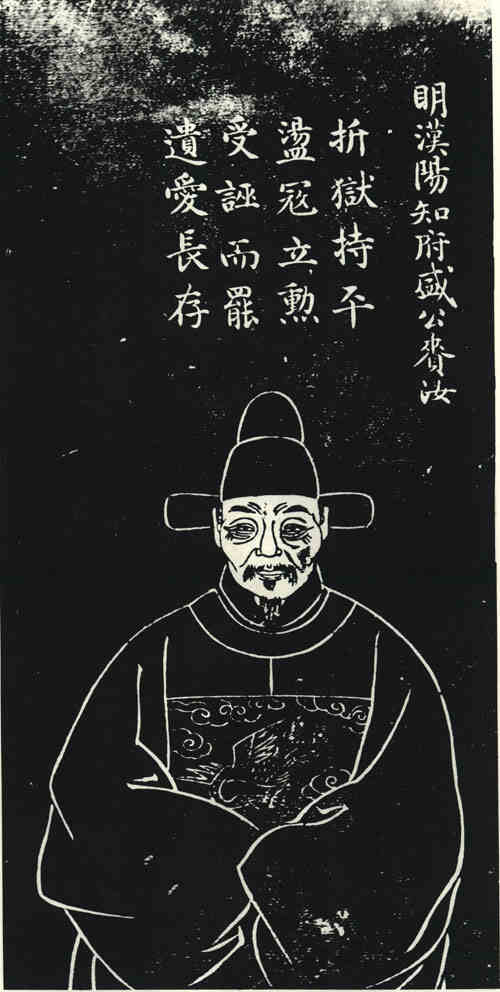 明漢陽知府盛公賚汝
折獄持平
盪冦立勲
受誣而罷
遺愛長存